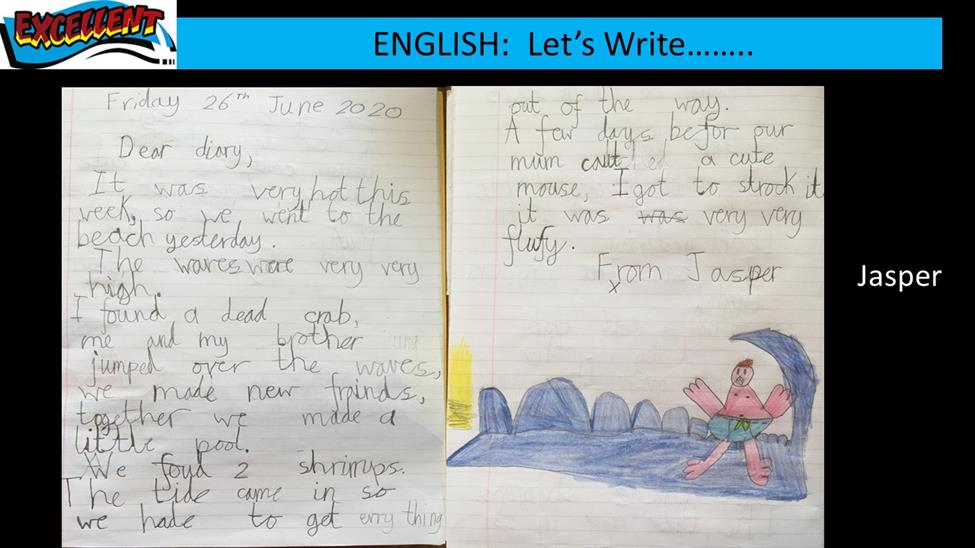 EXCELLENT
ENGLISH: Let's Write……..
Friday 26th June 2020
Dear diary,
It was very hot this
week, so we went to the
beach yesterday.
The waves were very very
high.
I found a dead crab,
me and my brother
jumped over the waves,
we made new frinds,
together we made a
little pool.
We foud 2 shrimps.
The tide came in so
we hade to get erry thing
out of the way.
A few days befor our
mum cautched a cute
mouse, I got to strock it
it was was very very
flufy.
From Jasper
x
Jasper